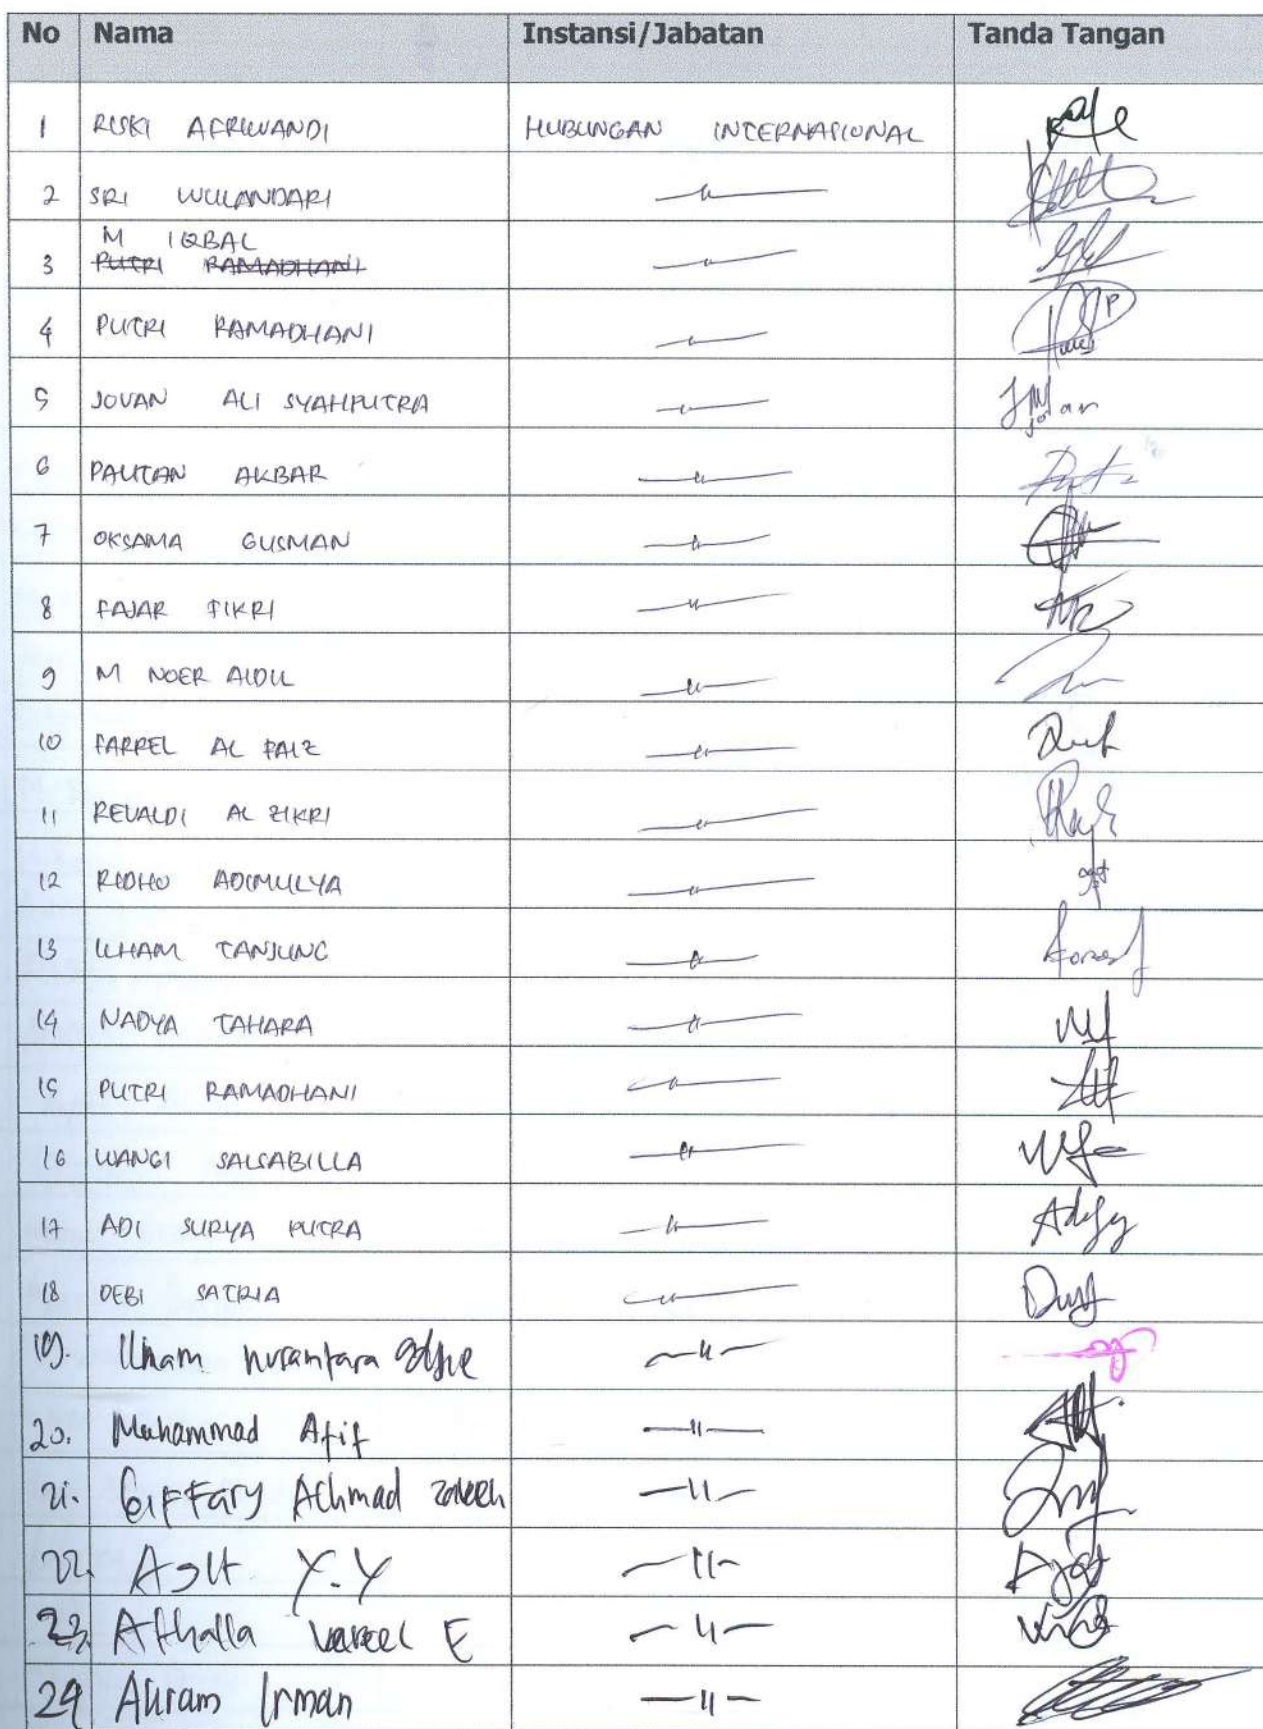 No Nama Instansi/Jabatan Tanda Tangan
1 RISKI AFRIWANDI HUBUNGAN INTERNASIONAL
2 SRI WULANDARI —〃—
M IQBAL
3 PUTRI RAMADHANI —〃—
4 PUTRI RAMADHANI —〃—
5 JOVAN ALI SYAHPUTRA —〃—
6 PAUTAN AKBAR —〃—
7 OKSAMA GUSMAN —〃—
8 FAJAR FIKRI —〃—
9 M NOER AIDIL —〃—
10 FARREL AL FAIZ —〃—
11 REVALDI AL ZIKRI —〃—
12 RIDHO ADIMULYA —〃—
13 ILHAM TANJUNG —〃—
14 NADYA TAHARA —〃—
15 PUTRI RAMADHANI —〃—
16 WANGI SALSABILLA —〃—
17 ADI SURYA PUTRA —〃—
18 DEBI SATRIA —〃—
19. Ilham nurantara —〃—
20. Muhammad Afif —〃—
21. Giffary Achmad —〃—
22. Y.Y —〃—
23. Athalla E —〃—
24 Akram Irman —〃—